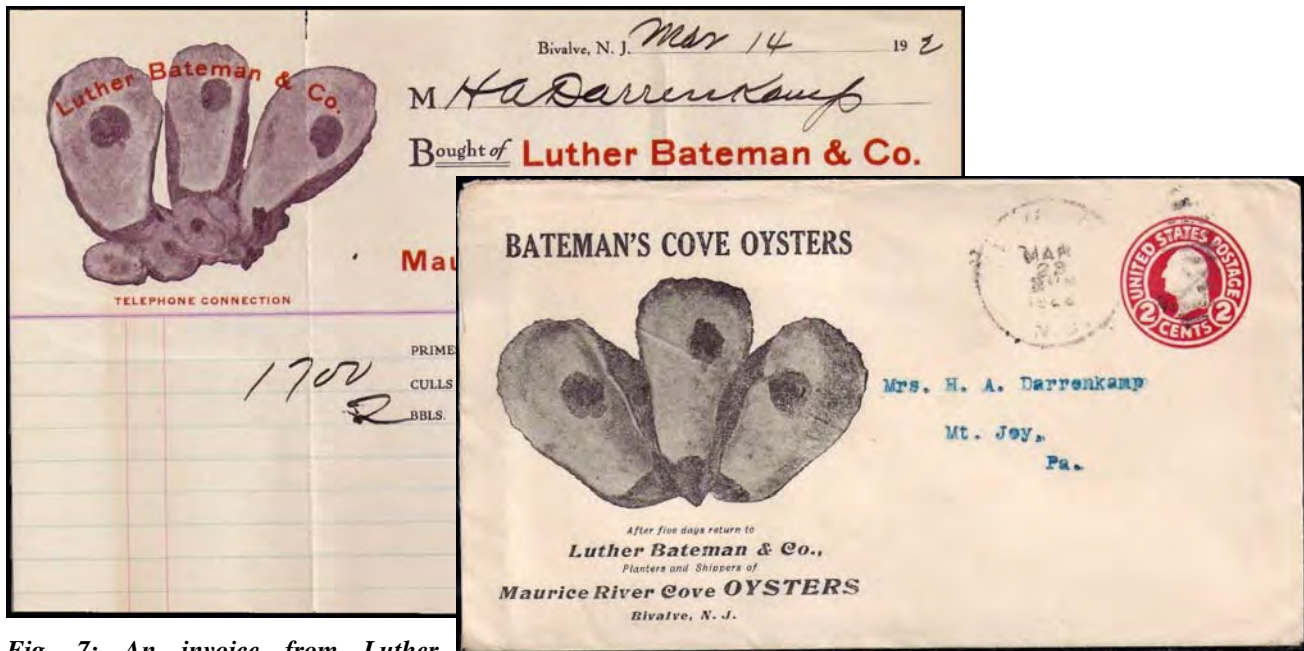 Luther Bateman & Co.
Bivalve, N. J. Mar 14 192
M H A Darrenkamp
Bought of Luther Bateman & Co.
Mau
TELEPHONE CONNECTION
PRIME
1700 CULLS
2 BBLS.
BATEMAN'S COVE OYSTERS
MAR
23
N. J.
UNITED STATES POSTAGE
2 CENTS 2
Mrs. H. A. Darrenkamp
Mt. Joy,
Pa.
After five days return to
Luther Bateman & Co.,
Planters and Shippers of
Maurice River Cove OYSTERS
Bivalve, N. J.
Fig. 7: An invoice from Luther